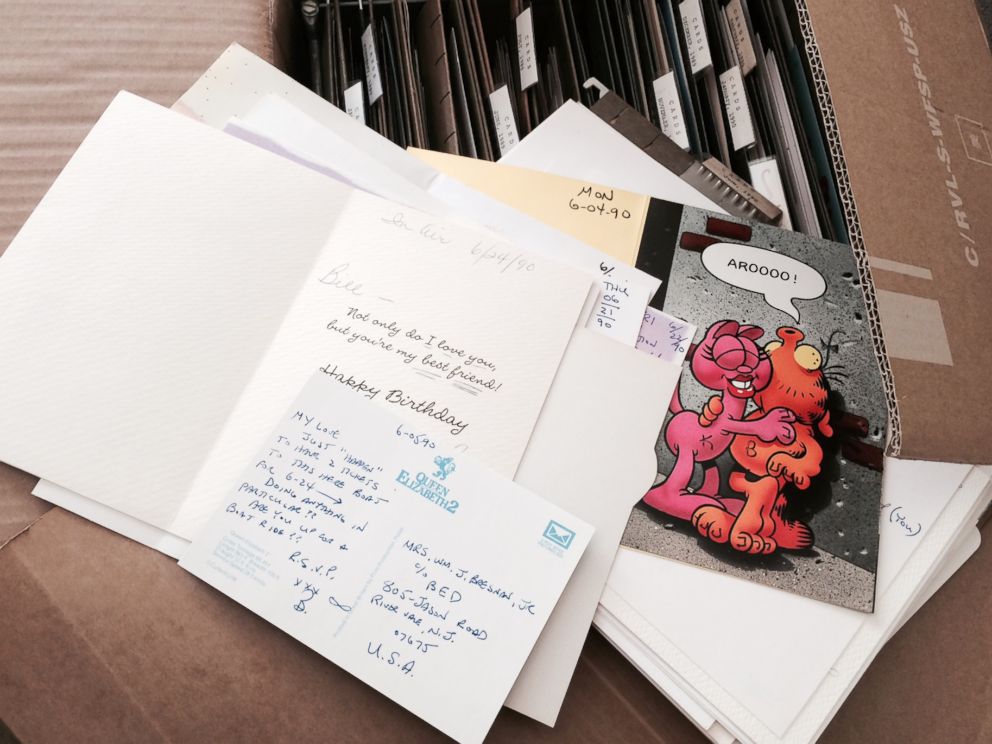 CARDS
CARDS
CARDS
CARDS
CARDS
CARDS
C/RVL-S-WPSP-USZ
MON
6-04-90
AROOOO!
In Air 6/24/90
Bill —
Not only do I love you,
but you're my best friend!
Happy Birthday
6/
THU
06
21
90
6/22
90
(YOU)
6-05-90
MY LOVE
JUST "HAPPEN"
TO HAVE 2 TICKETS
TO THIS HERE BOAT
FOR 6-24 →
DOING ANYTHING IN
PARTICULAR??
ARE YOU UP FOR A
BOAT RIDE??
R.S.V.P.
XXX
B. ∞
QUEEN
ELIZABETH 2
Queen Elizabeth 2
MRS. WM. J. BRESNAN, JR
c/o BED
805-JASON ROAD
RIVER VALE, N.J.
07675
U.S.A.
K
B